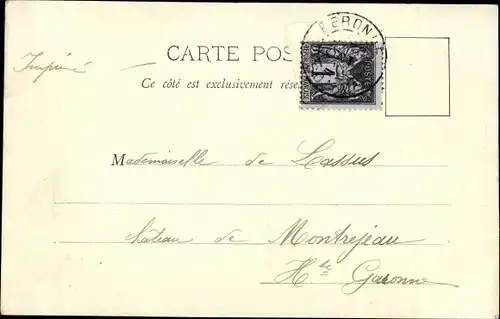 Imprimé
CARTE POS
Ce côté est exclusivement rése
1
POSTES
Mademoiselle de Lassus
château de Montrejeau
Hte Garonne